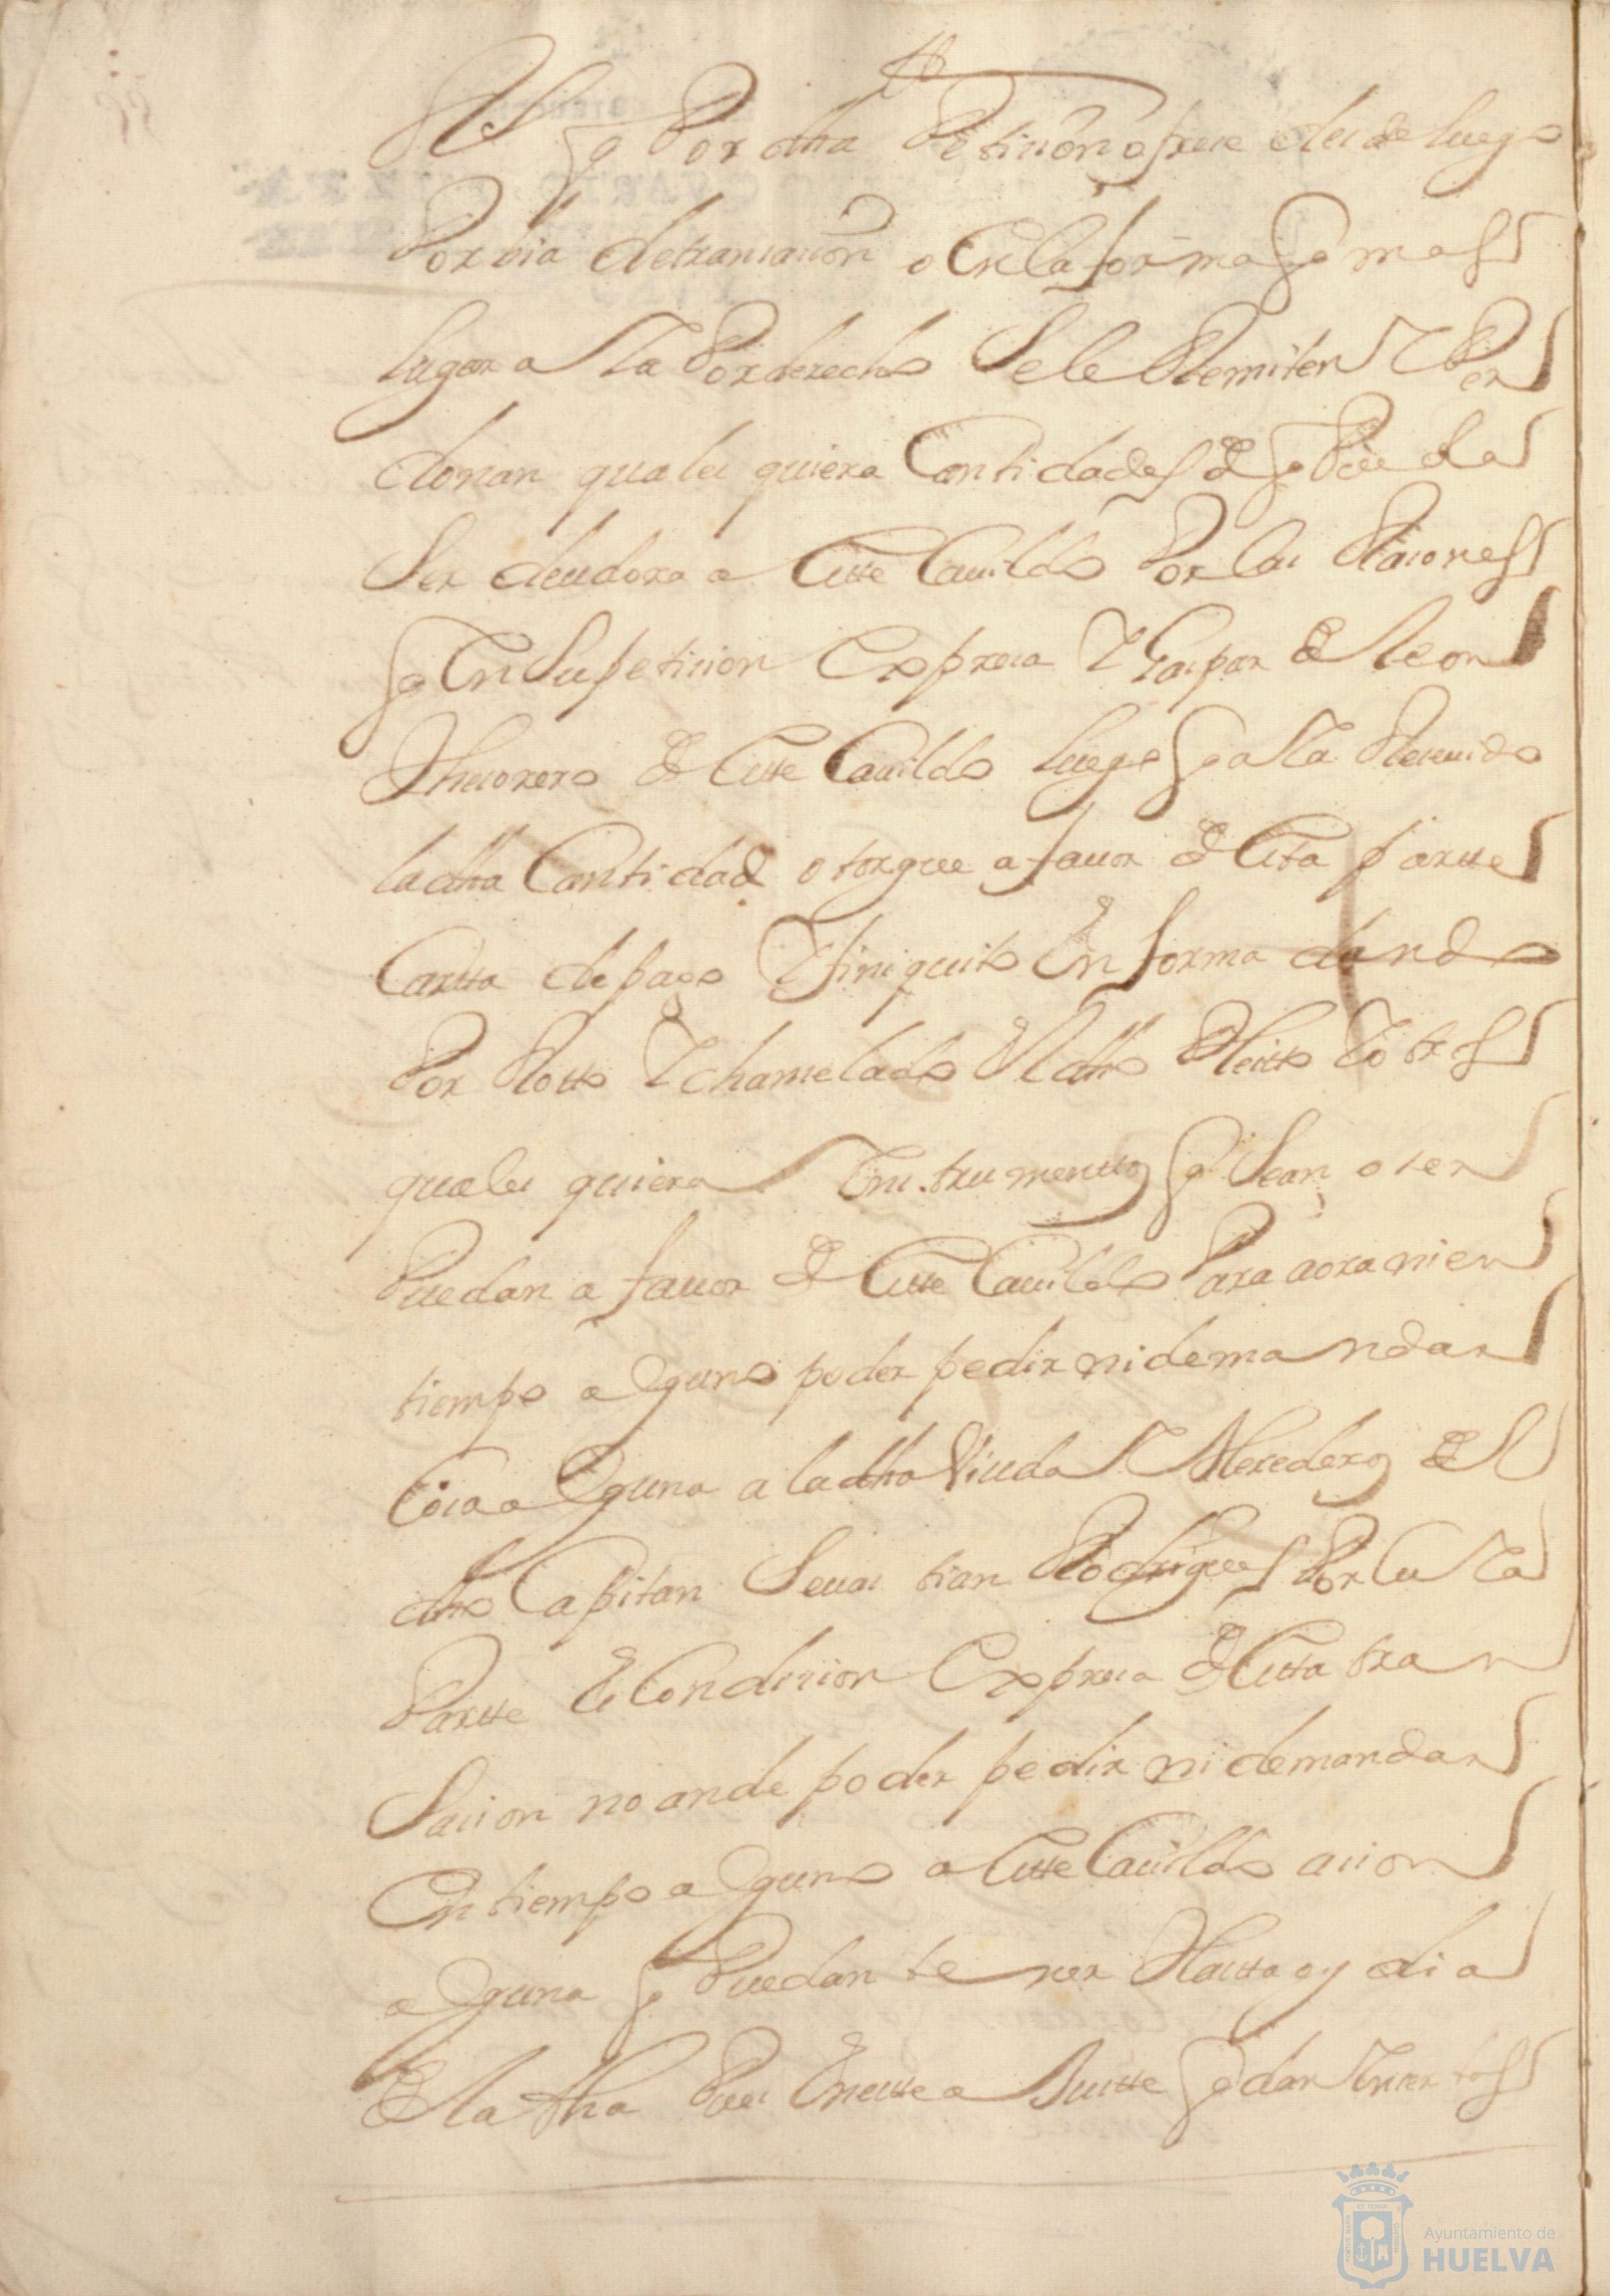 Vs q Por dha Petission ofrese desde luego
Por bia de transacion o en la forma q mas
lugar aya Por derecho Se le Remiten y Per
donan quales quiera Cantidades de q Pueda
Ser deudora a este Cauildo Por las Rasones
q en Su petision expresa y Gaspar de leon
thesorero de este Cauildo luego q aya Reseuido
la dha Cantidad otorgue a fauor de esta partte
Cartta de pago y finiquito en forma dando
Por Rotto y chanselado el dho Pleitto y otros
quales quiera Instrumenttos q Sean o ser
Puedan a fauor de este Cauildo Para aora ni en
tiempo alguno poder pedir ni demandar
Cosa alguna a la dha Viuda y Herederos del
dho Capitan Seuastian Rodrigues Por cuya
Partte es Condision expresa de esta tran
Sasion no an de poder pedir ni demandar
En tiempo alguno a este Cauildo asion
alguna q Puedan tener Hasta oy dia
de la fha Pues en este a Juste q dan Insertos
Ayuntamiento de
HUELVA